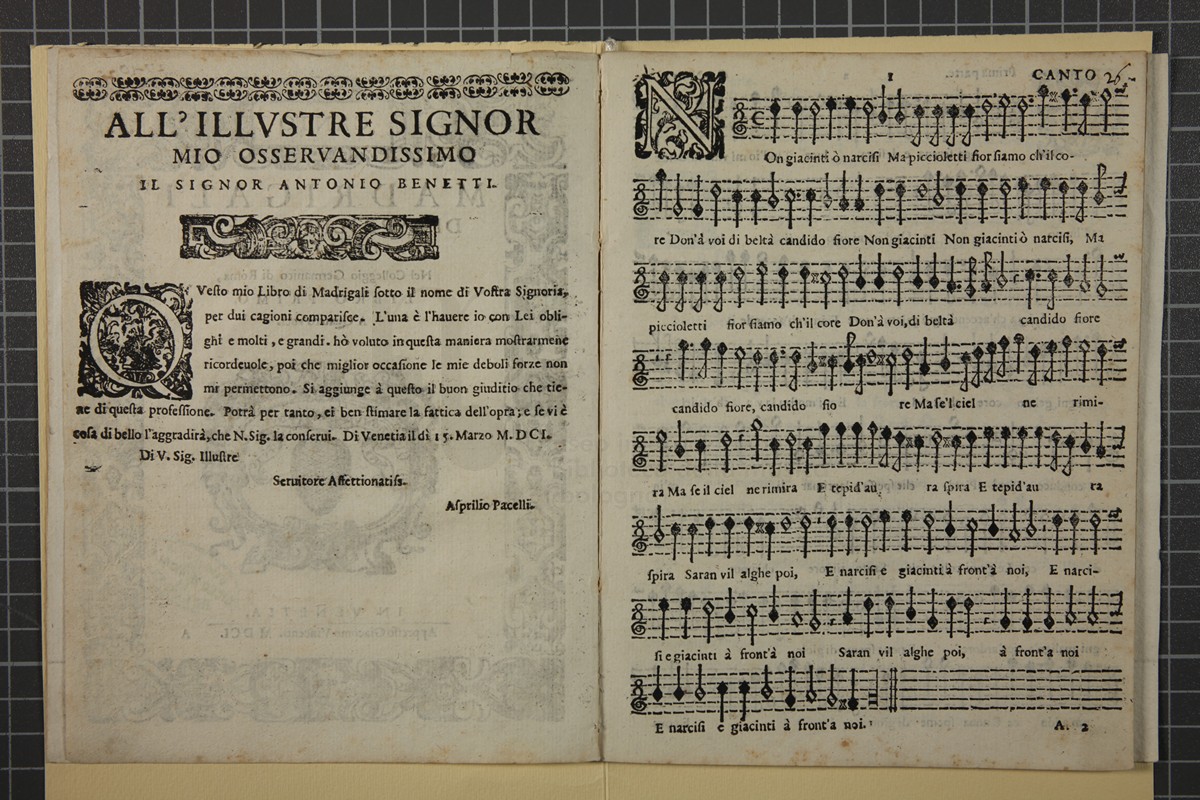 ALL'ILLVSTRE SIGNOR
MIO OSSERVANDISSIMO
IL SIGNOR ANTONIO BENETTI.
QVesto mio Libro di Madrigali sotto il nome di Vostra Signoria,
per dui cagioni comparisce. L'una è l'hauere io con Lei obli-
ghi e molti, e grandi. hò voluto in questa maniera mostrarmene
ricordeuole, poi che miglior occasione le mie deboli forze non
mi permettono. Si aggiunge à questo il buon giuditio che tie-
ne di questa professione. Potrà per tanto, ei ben stimare la fattica dell'opra; e se vi è
cosa di bello l'aggradirà, che N. Sig. la conserui. Di Venetia il dì 15. Marzo M. DCI.
Di V. Sig. Illustre
Seruitore Affettionatiss.
Asprilio Pacelli.
1 CANTO 26
NOn giacinti ò narcisi Ma piccioletti fior siamo ch'il co-
re Don'à voi di beltà candido fiore Non giacinti Non giacinti ò narcisi, Ma
piccioletti fior siamo ch'il core Don'à voi, di beltà candido fiore
candido fiore, candido fio re Ma se'l ciel ne rimi-
ra Ma se il ciel ne rimira E tepid'au ra spira E tepid'au ra
spira Saran vil alghe poi, E narcisi e giacinti à front'à noi, E narci-
si e giacinti à front'à noi Saran vil alghe poi, à front'a noi
E narcisi e giacinti à front'a noi.
A 2